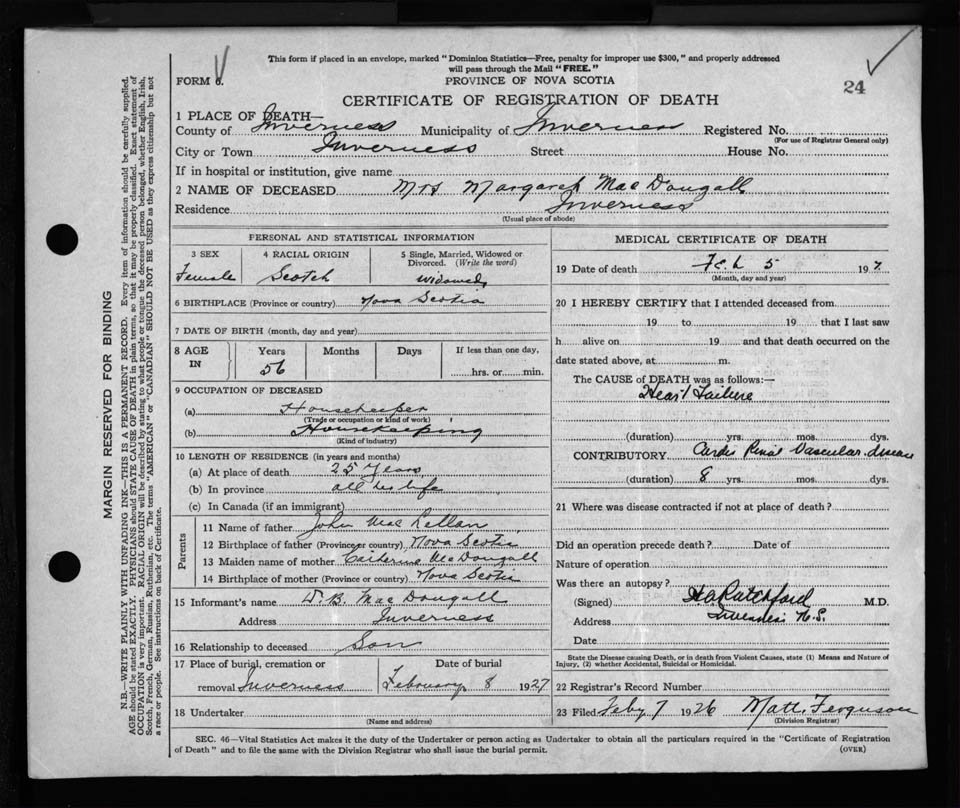 This form if placed in an envelope, marked "Dominion Statistics—Free, penalty for improper use $300," and properly addressed
will pass through the Mail "FREE."
FORM 6.
PROVINCE OF NOVA SCOTIA
24
CERTIFICATE OF REGISTRATION OF DEATH
1 PLACE OF DEATH—
County of Inverness Municipality of Inverness Registered No.
(For use of Registrar General only)
City or Town Inverness Street House No.
If in hospital or institution, give name
2 NAME OF DECEASED Mrs Margaret MacDougall
Residence Inverness
(Usual place of abode)
PERSONAL AND STATISTICAL INFORMATION
3 SEX 4 RACIAL ORIGIN 5 Single, Married, Widowed or
Divorced. (Write the word)
Female Scotch widowed
6 BIRTHPLACE (Province or country) Nova Scotia
7 DATE OF BIRTH (month, day and year)
8 AGE IN Years Months Days If less than one day,
56 hrs. or min.
9 OCCUPATION OF DECEASED
(a) Housekeeper
(Trade or occupation or kind of work)
(b) Housekeeping
(Kind of industry)
10 LENGTH OF RESIDENCE (in years and months)
(a) At place of death 25 Years
(b) In province all his life
(c) In Canada (if an immigrant)
Parents
11 Name of father John MacLellan
12 Birthplace of father (Province or country) Nova Scotia
13 Maiden name of mother McDougall
14 Birthplace of mother (Province or country) Nova Scotia
15 Informant's name D. B. MacDougall
Address Inverness
16 Relationship to deceased Son
17 Place of burial, cremation or Date of burial
removal Inverness February 8 1927
18 Undertaker
(Name and address)
MEDICAL CERTIFICATE OF DEATH
19 Date of death Feb 5 197.
(Month, day and year)
20 I HEREBY CERTIFY that I attended deceased from
19 to 19 that I last saw
h alive on 19 and that death occurred on the
date stated above, at m.
The CAUSE of DEATH was as follows:—
Heart Failure
(duration) yrs. mos. dys.
CONTRIBUTORY Cardio Renal Vascular disease
(duration) 8 yrs. mos. dys.
21 Where was disease contracted if not at place of death?
Did an operation precede death? Date of
Nature of operation
Was there an autopsy?
(Signed) H. A. Ratchford M.D.
Address Inverness N.S.
Date
State the Disease causing Death, or in death from Violent Causes, state (1) Means and Nature of
Injury, (2) whether Accidental, Suicidal or Homicidal.
22 Registrar's Record Number
23 Filed Feby 7 1926 Matt. Ferguson
(Division Registrar)
SEC. 46—Vital Statistics Act makes it the duty of the Undertaker or person acting as Undertaker to obtain all the particulars required in the "Certificate of Registration
of Death" and to file the same with the Division Registrar who shall issue the burial permit. (OVER)
MARGIN RESERVED FOR BINDING
N.B.—WRITE PLAINLY WITH UNFADING INK—THIS IS A PERMANENT RECORD. Every item of information should be carefully supplied.
AGE should be stated EXACTLY. PHYSICIANS should STATE CAUSE OF DEATH in plain terms, so that it may be properly classified. Exact statement of
OCCUPATION is very important. RACIAL ORIGIN will be described by stating to what people or tongue the deceased person belonged, whether English, Irish,
Scotch, French, German, Russian, Ruthenian, etc. The terms "AMERICAN" or "CANADIAN" SHOULD NOT BE USED as they express citizenship but not
a race or people. See instructions on back of Certificate.